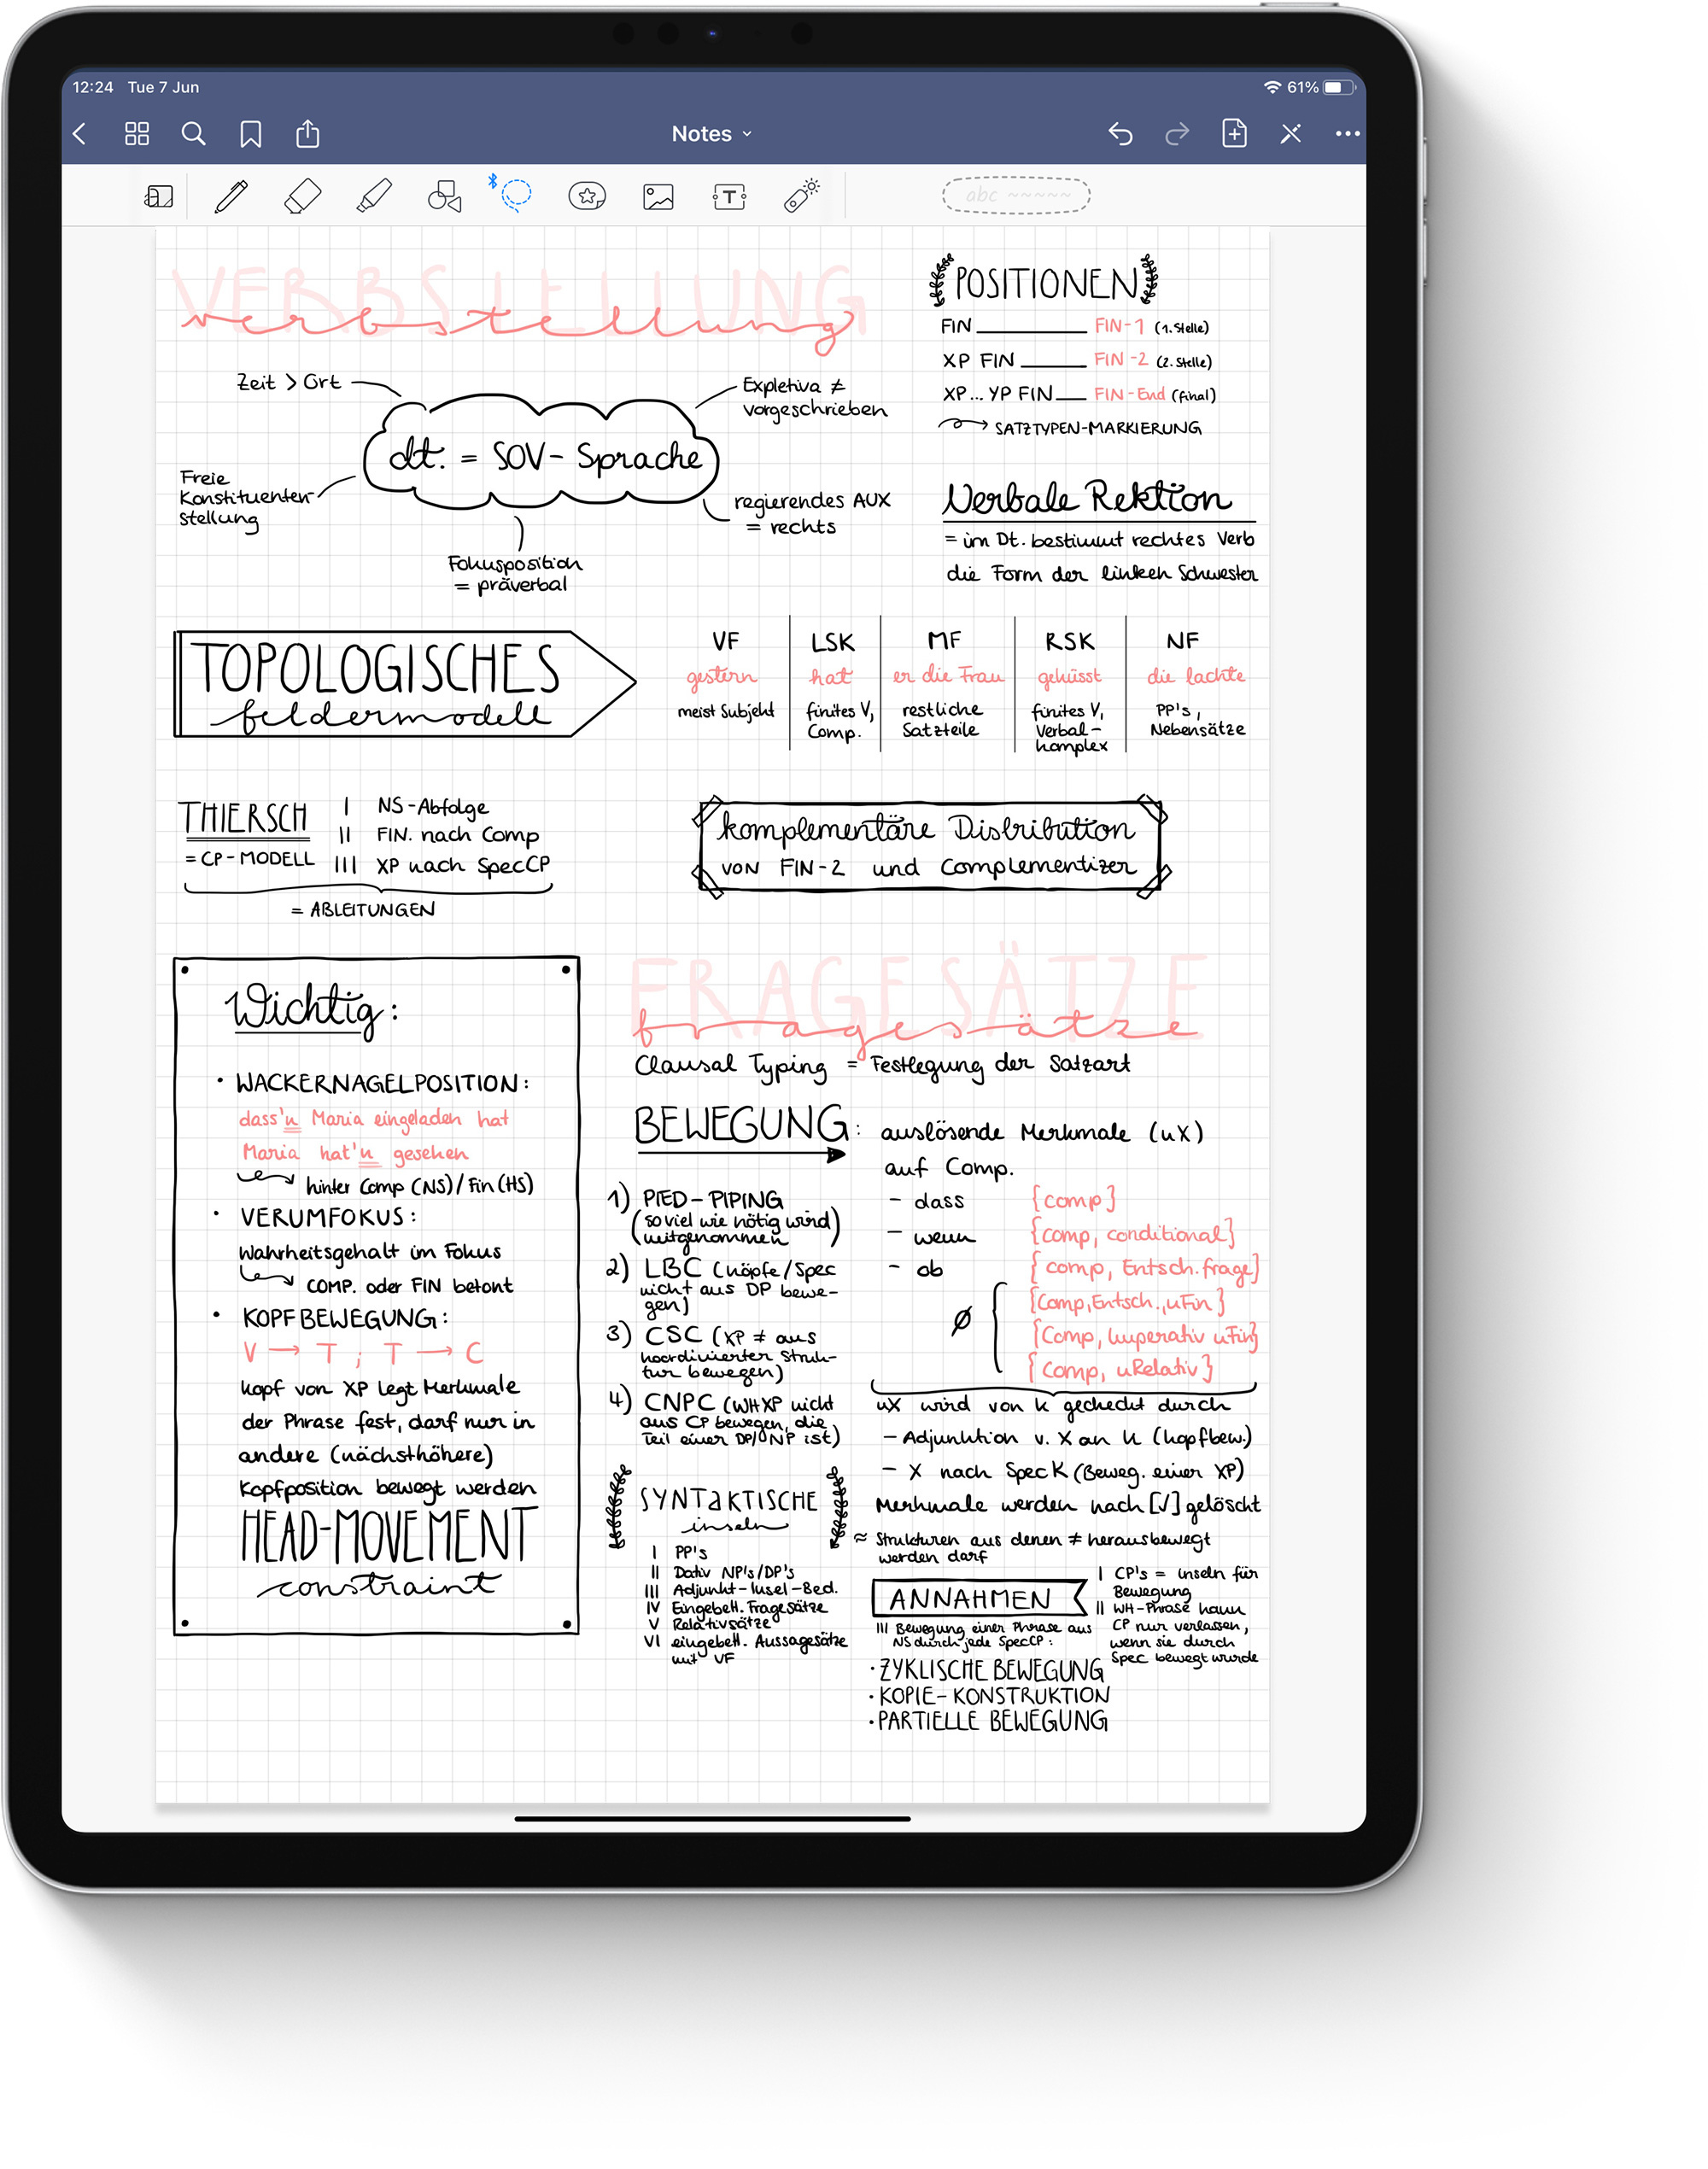 12:24 Tue 7 Jun
61%
Notes
abc
VERBSTELLUNG
verbstellung
Zeit > Ort
Expletiva ≠
vorgeschrieben
dt. = SOV- Sprache
Freie
Konstituenten-
stellung
regierendes AUX
= rechts
Fokusposition
= präverbal
POSITIONEN
FIN FIN-1 (1.Stelle)
XP FIN FIN-2 (2.Stelle)
XP... YP FIN FIN-End (final)
SATZTYPEN-MARKIERUNG
Verbale Rektion
= im Dt. bestimmt rechtes Verb
die Form der linken Schwester
TOPOLOGISCHES
feldermodell
VF LSK MF RSK NF
gestern hat er die Frau geküsst die lachte
meist Subjekt finites V, restliche finites V, PP's,
Comp. Satzteile Verbal- Nebensätze
komplex
THIERSCH
= CP-MODELL
I NS-Abfolge
II FIN. nach Comp
III XP nach SpecCP
= ABLEITUNGEN
komplementäre Distribution
von FIN-2 und Complementizer
Wichtig:
• WACKERNAGELPOSITION:
dass'n Maria eingeladen hat
Maria hat'n gesehen
hinter Comp (NS)/Fin (HS)
• VERUMFOKUS:
Wahrheitsgehalt im Fokus
COMP. oder FIN betont
• KOPFBEWEGUNG:
V → T ; T → C
Kopf von XP legt Merkmale
der Phrase fest, darf nur in
andere (nächsthöhere)
Kopfposition bewegt werden
HEAD-MOVEMENT
constraint
FRAGESÄTZE
fragesätze
Clausal Typing = Festlegung der Satzart
BEWEGUNG: auslösende Merkmale (uX)
auf Comp.
1) PIED-PIPING
(so viel wie nötig wird
mitgenommen)
2) LBC (Köpfe/Spec
nicht aus DP bewe-
gen)
3) CSC (XP ≠ aus
koordinierter Struk-
tur bewegen)
4) CNPC (WHXP nicht
aus CP bewegen, die
Teil einer DP/NP ist)
- dass {comp}
- wenn {comp, conditional}
- ob {comp, Entsch.frage}
{Comp,Entsch.,uFin}
ø {Comp, Imperativ uFin}
{Comp, uRelativ}
uX wird von K gecheckt durch
- Adjunktion v. X an K (Kopfbew.)
- X nach Spec K (Beweg. einer XP)
Merkmale werden nach [√] gelöscht
SYNTAKTISCHE
inseln
≈ Strukturen aus denen ≠ herausbewegt
werden darf
I PP's
II Dativ NP's/DP's
III Adjunkt-Insel-Bed.
IV Eingebett. Fragesätze
V Relativsätze
VI eingebett. Aussagesätze
mit VF
ANNAHMEN
I CP's = Inseln für
Bewegung
II WH-Phrase kann
CP nur verlassen,
wenn sie durch
Spec bewegt wurde
III Bewegung einer Phrase aus
NS durch jede SpecCP:
• ZYKLISCHE BEWEGUNG
• KOPIE-KONSTRUKTION
• PARTIELLE BEWEGUNG